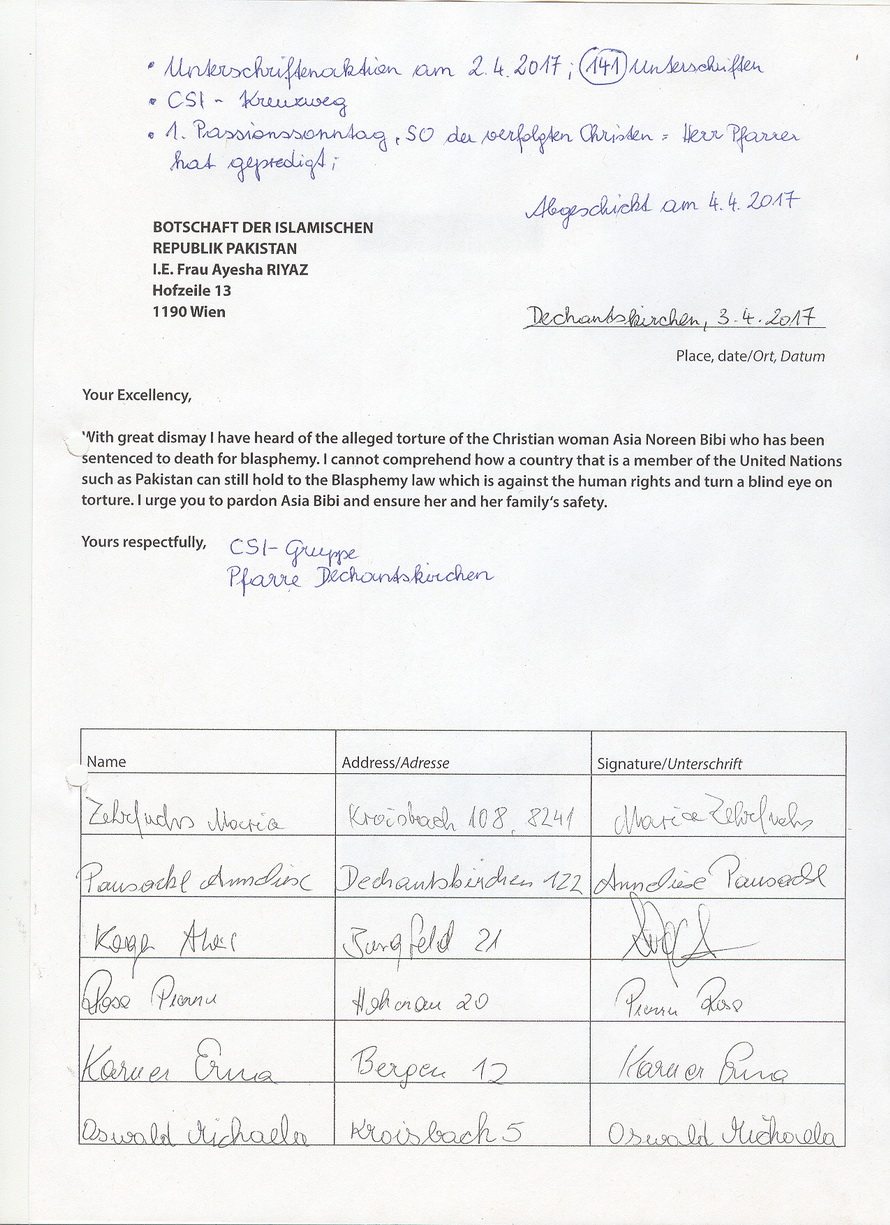 • Unterschriftenaktion am 2.4.2017; 141 Unterschriften
• CSI - Kreuzweg
• 1. Passionssonntag, SO der verfolgten Christen = Herr Pfarrer
hat gepredigt;
Abgeschickt am 4.4.2017
BOTSCHAFT DER ISLAMISCHEN
REPUBLIK PAKISTAN
I.E. Frau Ayesha RIYAZ
Hofzeile 13
1190 Wien
Dechantskirchen, 3.4.2017
Place, date/Ort, Datum
Your Excellency,
With great dismay I have heard of the alleged torture of the Christian woman Asia Noreen Bibi who has been
sentenced to death for blasphemy. I cannot comprehend how a country that is a member of the United Nations
such as Pakistan can still hold to the Blasphemy law which is against the human rights and turn a blind eye on
torture. I urge you to pardon Asia Bibi and ensure her and her family's safety.
Yours respectfully, CSI-Gruppe
Pfarre Dechantskirchen
Name Address/Adresse Signature/Unterschrift
Zehrfuchs Maria Kroisbach 108, 8241 Maria Zehrfuchs
Pausackl Anneliese Dechantskirchen 122 Anneliese Pausackl
21
Rosa Hohenau 20 Rosa
Karner Erna Bergen 12 Karner Erna
Oswald Michaela Kroisbach 5 Oswald Michaela